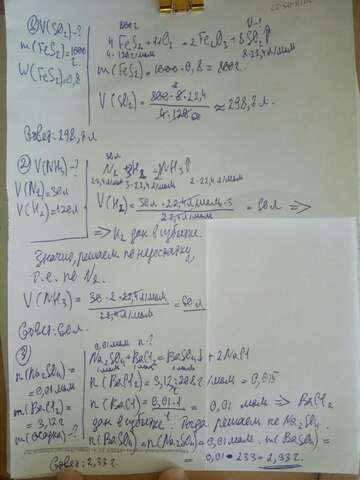 ① V(SO₂)-?
m(FeS₂)=1000г
W(FeS₂)=0,8
800г V-?
4FeS₂ + 11O₂ = 2Fe₂O₃ + 8SO₂↑
4·120г/моль 8·22,4 л/моль
m(FeS₂) = 1000·0,8 = 800г.
V(SO₂) = 800·8·22,4 / 4·120 ≈ 298,7 л
Ответ: 298,7 л
② V(NH₃)-?
V(N₂)=30л
V(H₂)=120л
30л
N₂ 3H₂ 2NH₃↑
22,4 л/моль 3·22,4 л/моль 2·22,4 л/моль
V(H₂) = 30л·22,4 л/моль·3 / 22,4 л/моль = 90л ⇒
⇒ H₂ дан в избытке.
Значит, решаем по недостатку,
т.е. по N₂.
V(NH₃) = 30·2·22,4 л/моль / 22,4 л/моль = 60л
Ответ: 60л.
③
n(Na₂SO₄)=
=0,01моль
m(BaCl₂)=
=3,12г
m(осадка)-?
0,01моль n-?
Na₂SO₄ + BaCl₂ = BaSO₄↓ + 2NaCl
1моль 1моль 1моль
n(BaCl₂) = 3,12:208г/моль = 0,015
n(BaCl) = 0,01·1 / 1 = 0,01 моль ⇒ BaCl₂
дан в избытке. Тогда решаем по Na₂SO₄.
n(BaSO₄) = n(Na₂SO₄) = 0,01моль. m(BaSO₄) =
= 0,01·233 = 2,33г.
Ответ: 2,33г.